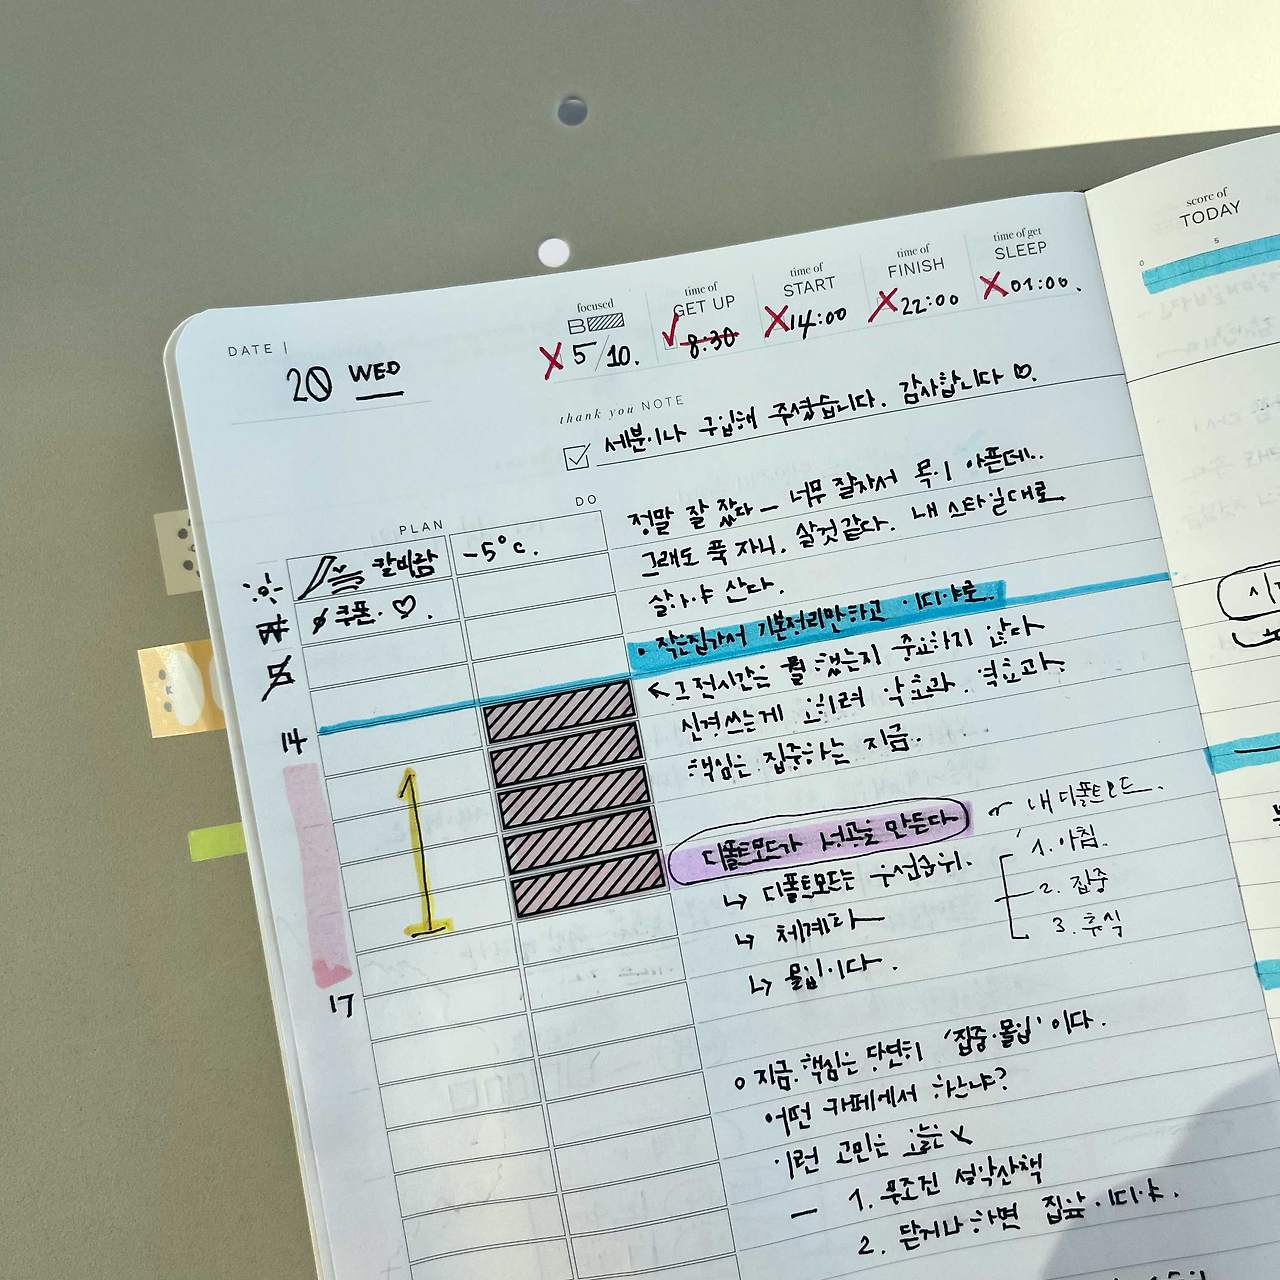 score of
TODAY
0
5
DATE |
20 WED
focused
5/10.
time of
GET UP
8:30
time of
START
14:00
time of
FINISH
22:00
time of get
SLEEP
01:00.
thank you NOTE
세분이나 구입해 주셨습니다. 감사합니다 ♡.
PLAN
DO
칼바람
-5°C.
쿠폰. ♡.
14
17
정말 잘 잤다 _ 너무 잘자서 목이 아픈데..
그래도 푹 자니. 살것 같다. 내 스타일대로
살아야 산다.
• 작은집가서 기본정리만하고 이디야로.
그 전시간은 뭘 했는지 중요하지 않다
신경쓰는게 오히려 악효과. 역효과.
핵심은 집중하는 지금.
디폴트모드가 성공을 만든다
내 디폴트모드.
↳ 디폴트모드는 우선순위.
↳ 체계다
↳ 몰입이다.
1. 아침.
2. 집중
3. 휴식
○ 지금. 핵심은 단연히 '집중·몰입' 이다.
어떤 카페에서 하느냐?
이런 고민은 오늘 X
1. 무조건 설악산책
2. 닫거나 하면 집앞 이디야.